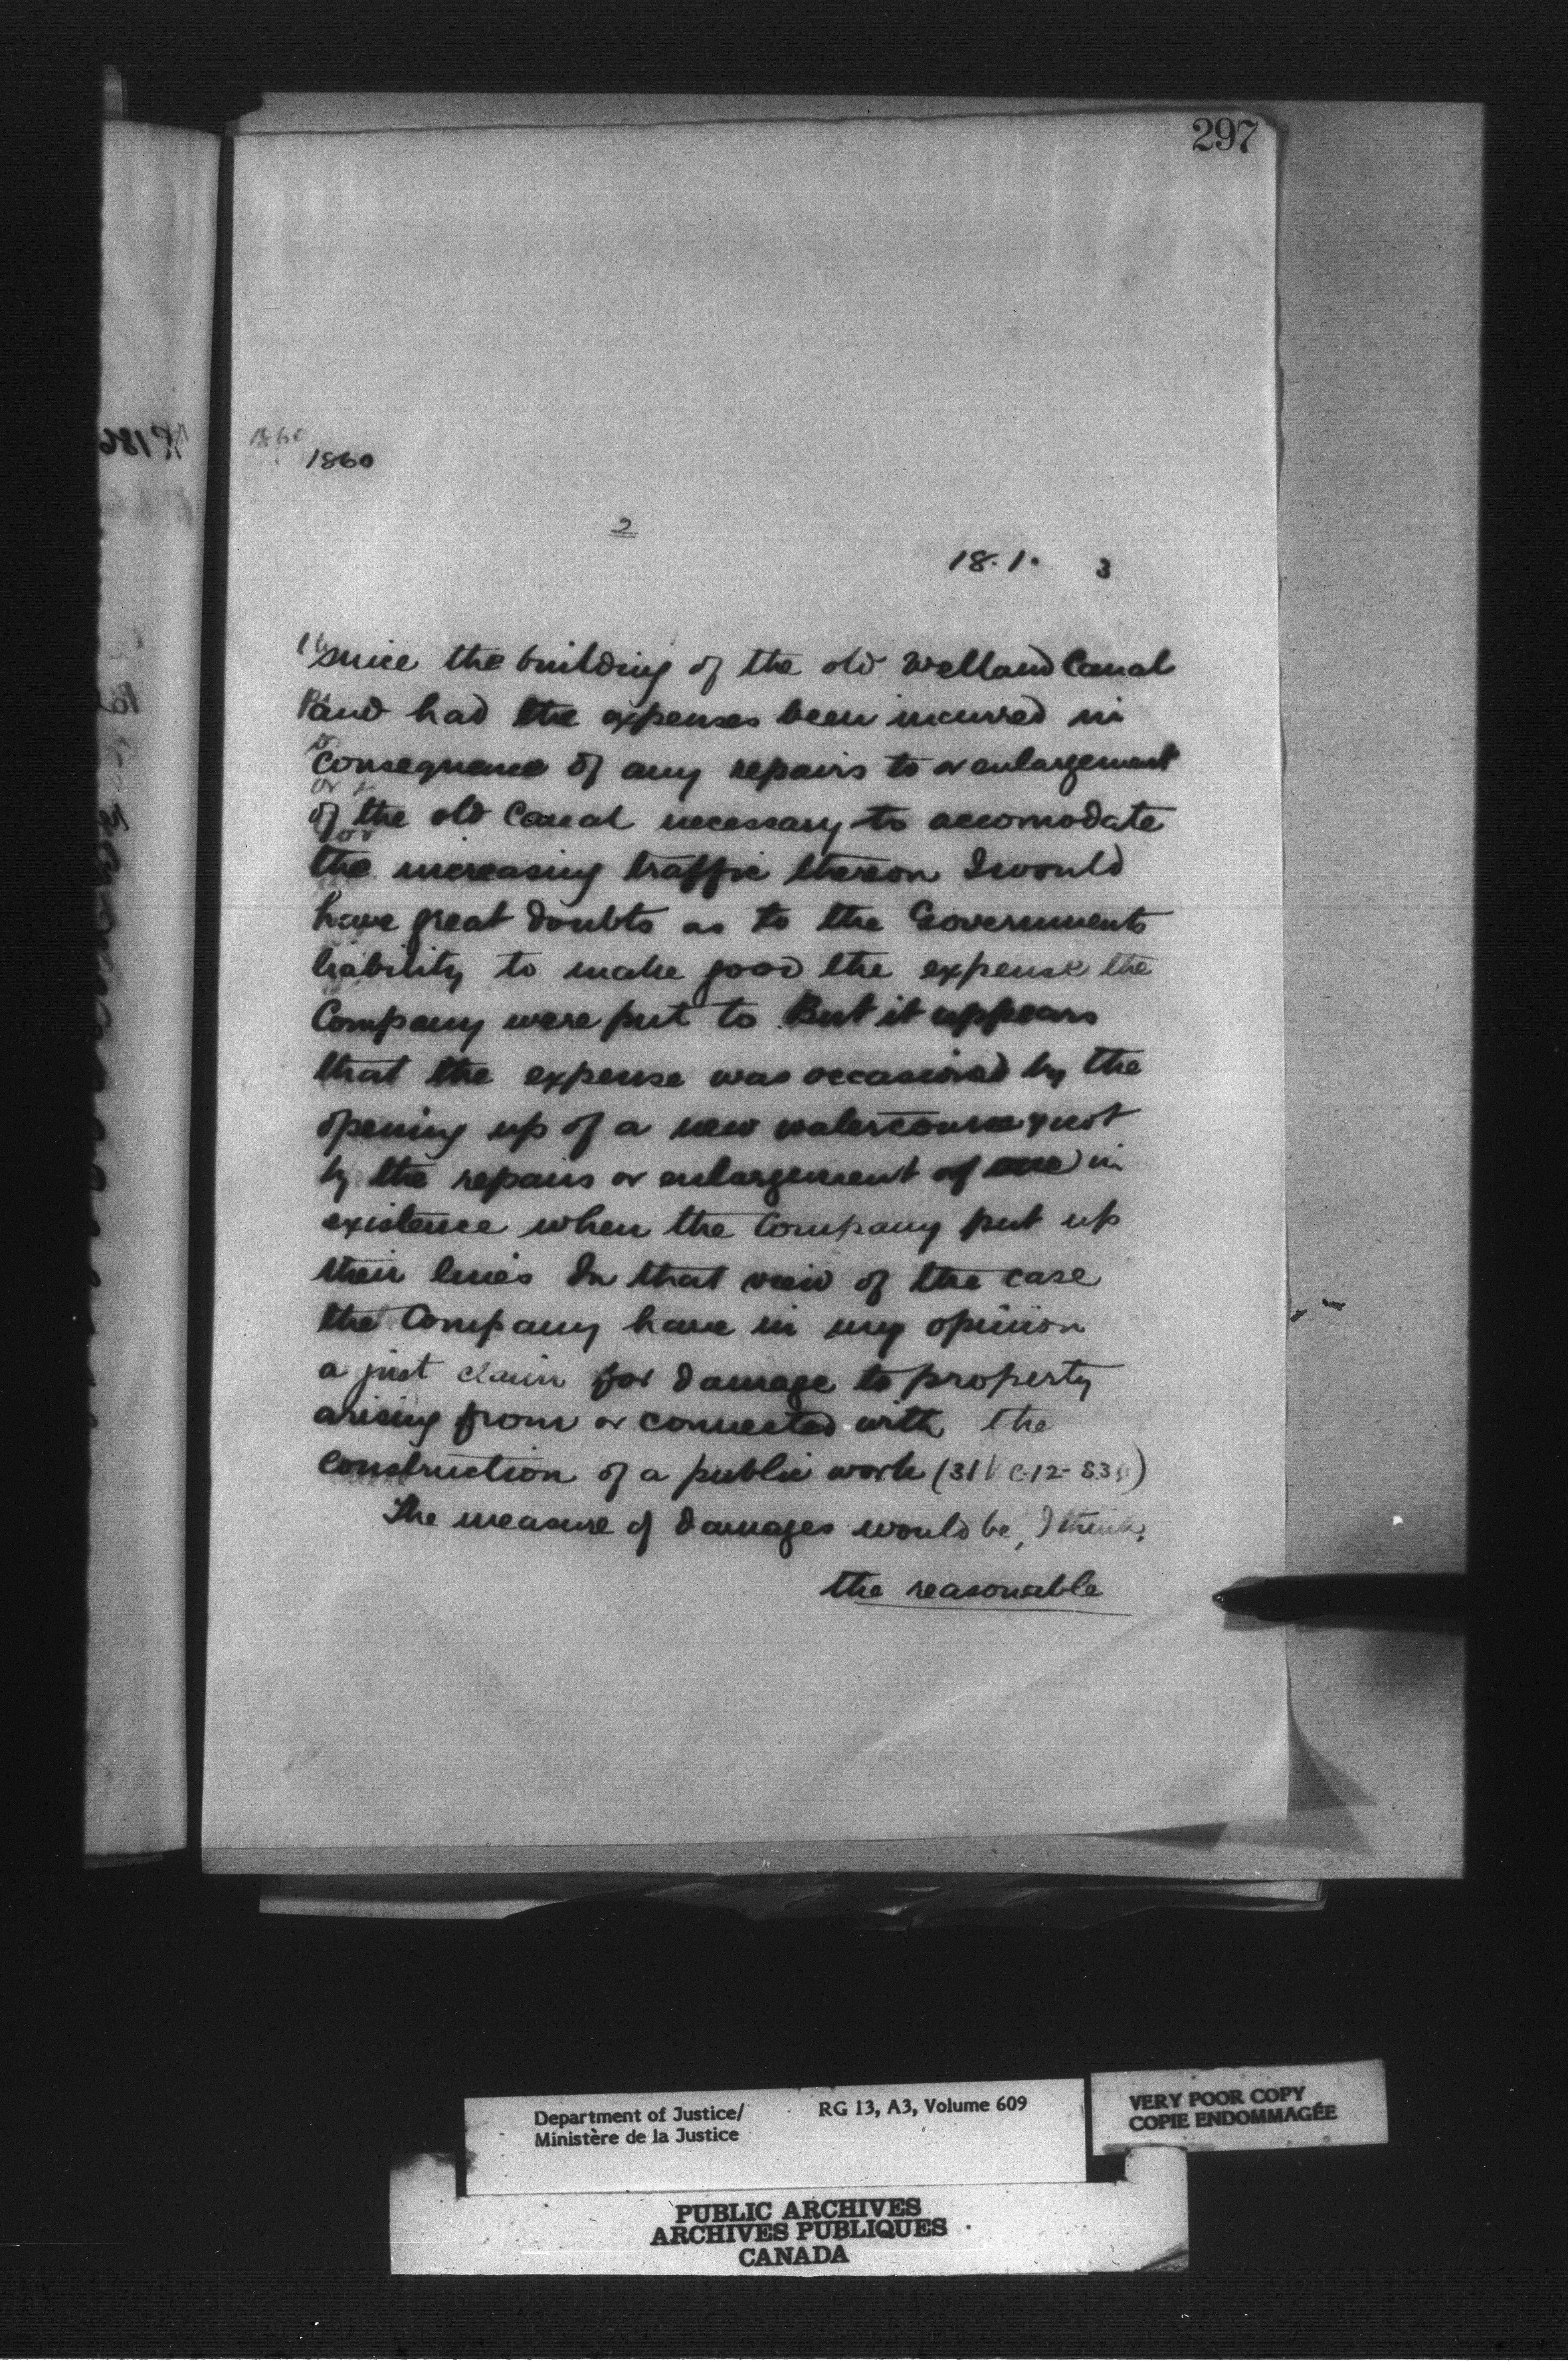 297
1860
1860
2
18. 1. 3
since the building of the old Welland Canal
and had the expenses been incurred in
consequence of any repairs to or enlargement
of the old Canal necessary to accomodate
the increasing traffic thereon I would
have great doubts as to the Governments
liability to make good the expense the
Company were put to But it appears
that the expense was occasioned by the
opening up of a new watercourse & not
by the repairs or enlargement of one in
existence when the Company put up
their lines In that view of the case
the Company have in my opinion
a just claim for damage to property
arising from or connected with the
construction of a public work (31 V c. 12 -
The measure of damages would be, I think,
the reasonable
Department of Justice/
Ministère de la Justice
RG 13, A3, Volume 609
VERY POOR COPY
COPIE ENDOMMAGÉE
PUBLIC ARCHIVES
ARCHIVES PUBLIQUES
CANADA